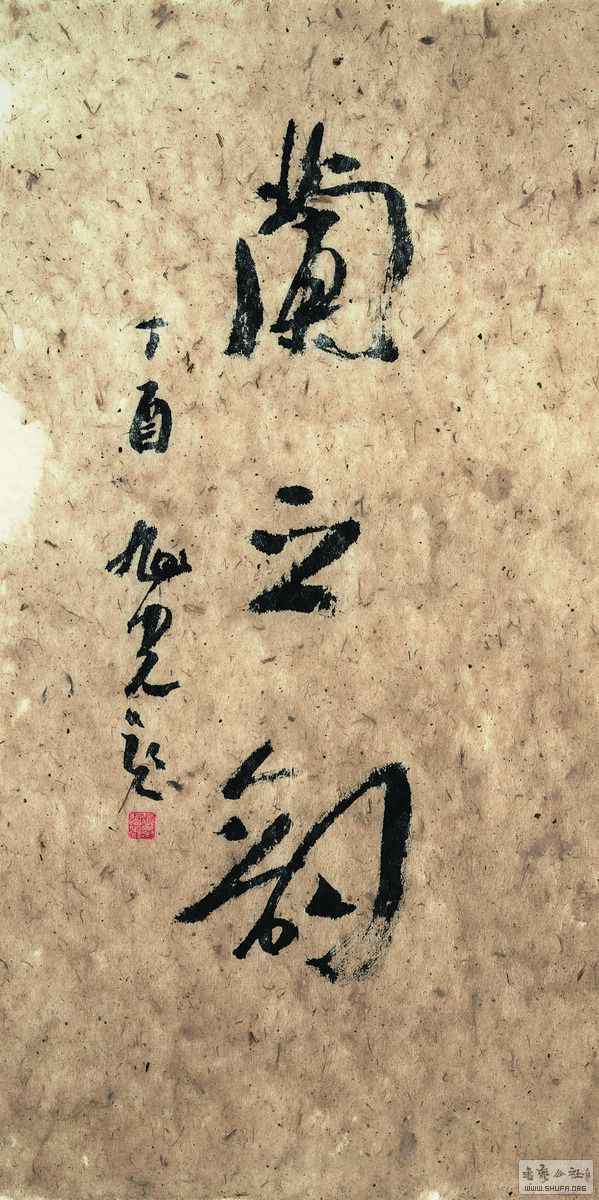 蘭之韵
丁酉 旭光題
書藝公社
WWW.SHUFA.ORG